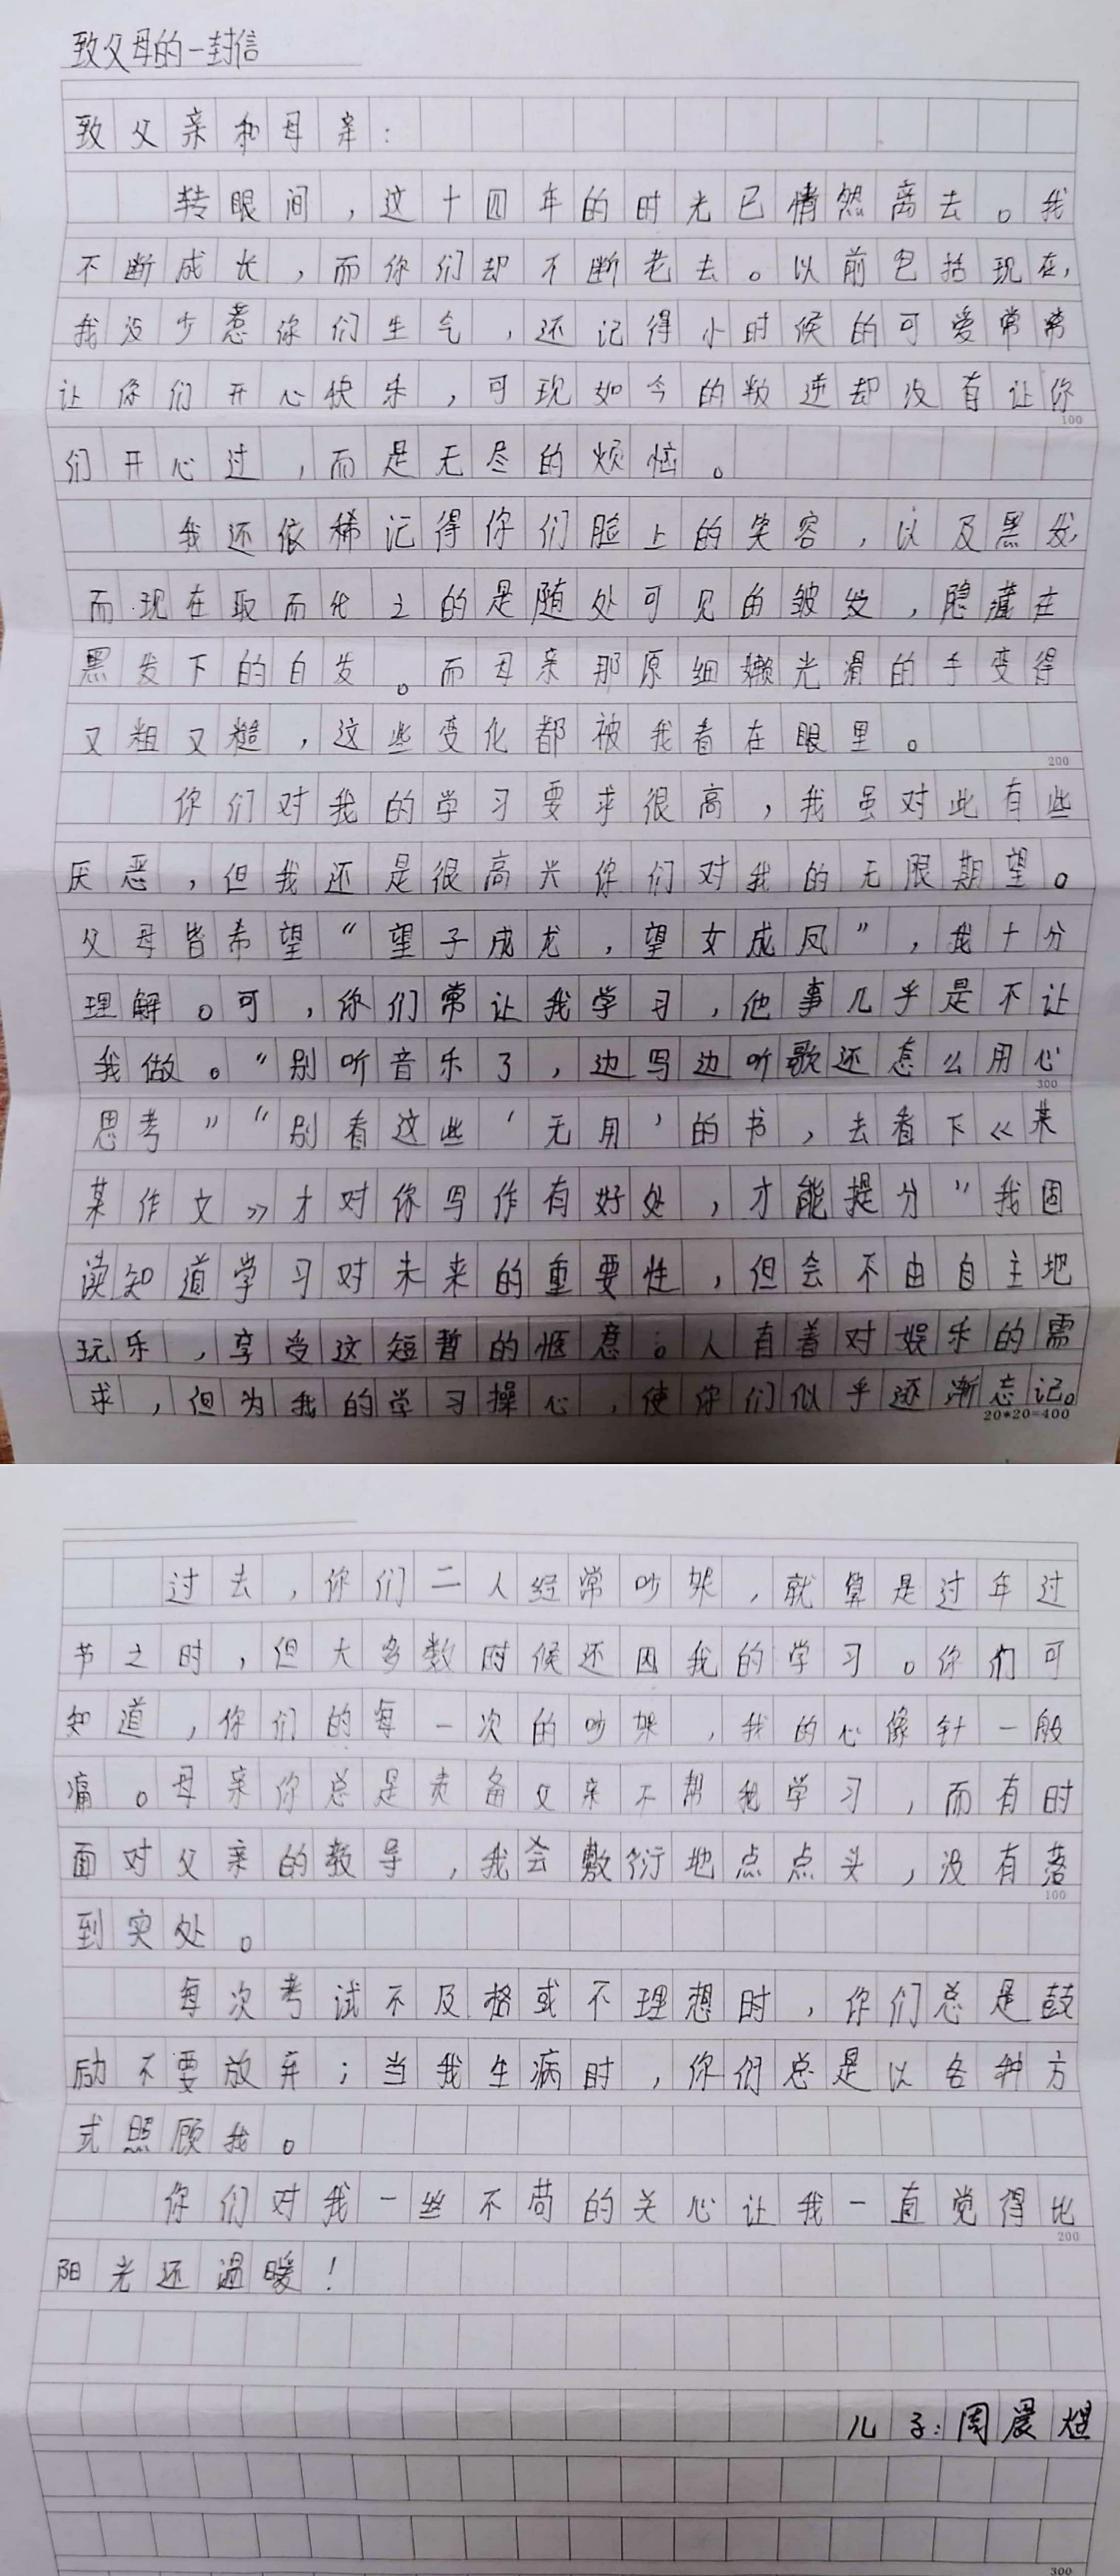 致父母的一封信
致父亲和母亲：
转眼间，这十四年的时光已悄然离去。我
不断成长，而你们却不断老去。以前包括现在，
我没少惹你们生气，还记得小时候的可爱常常
让你们开心快乐，可现如今的叛逆却没有让你
们开心过，而是无尽的烦恼。
100
我还依稀记得你们脸上的笑容，以及黑发，
而现在取而代之的是随处可见的皱发，隐藏在
黑发下的白发。而母亲那原细嫩光滑的手变得
又粗又糙，这些变化都被我看在眼里。
200
你们对我的学习要求很高，我虽对此有些
厌恶，但我还是很高兴你们对我的无限期望。
父母皆希望“望子成龙，望女成凤”，我十分
理解。可，你们常让我学习，他事几乎是不让
我做。“别听音乐了，边写边听歌还怎么用心
300
思考”“别看这些‘无用’的书，去看下《某
某作文》才对你写作有好处，才能提分”我固
读知道学习对未来的重要性，但会不由自主地
玩乐，享受这短暂的惬意。人有着对娱乐的需
求，但为我的学习操心，使你们似乎逐渐忘记。
20*20=400
过去，你们二人经常吵架，就算是过年过
节之时，但大多数时候还因我的学习。你们可
知道，你们的每一次的吵架，我的心像针一般
痛。母亲你总是责备父亲不帮我学习，而有时
面对父亲的教导，我会敷衍地点点头，没有落
100
到实处。
每次考试不及格或不理想时，你们总是鼓
励不要放弃；当我生病时，你们总是以各种方
式照顾我。
你们对我一丝不苟的关心让我一直觉得比
200
阳光还温暖！
儿子：周晨煜
300